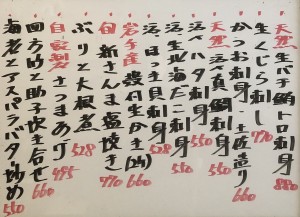 天然 生バチ鮪トロ刺身 880
生くじら刺し 770
かつお刺身・土佐造り 660
天然 活〆真鯛刺身 550
活〆ハタ刺身 550
活生北海だこ刺身 550
活ほっき貝刺身 528
岩手産 殻付生かき(2ヶ) 660
旬 新さんま塩焼き 770
ぶりと大根煮 528
自家製 さつまあげ 495
四方竹と助子炊き合せ 660
海老とアスパラバタ炒め 550